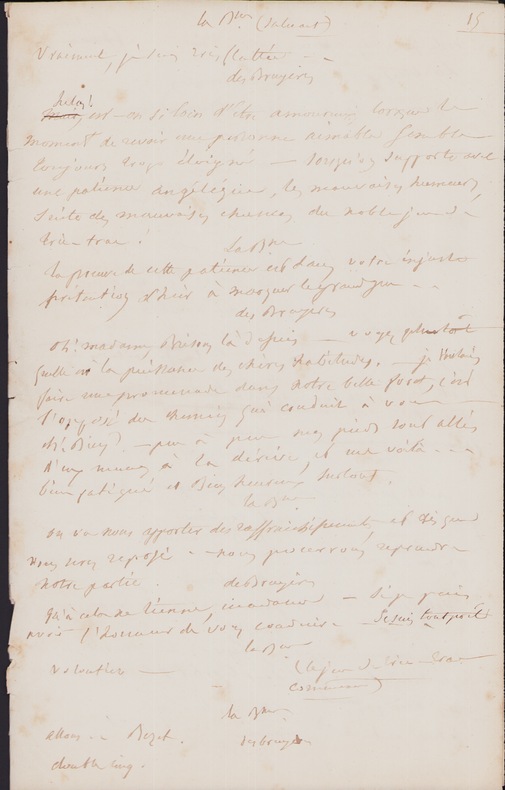 la Bne (saluant)
15
Vraiment, je suis très flattée - -
des Bruyères
hélas!
est-on si loin d'être amoureux lorsque le
moment de revoir une personne aimable semble
toujours trop éloigné — lorsqu'on supporte avec
une patience angélique, les mauvaises humeurs,
suite des mauvaises chances du noble jeu de
tric-trac!
La Bne
la preuve de cette patience est dans votre injuste
prétention d'hier à marquer le grand jan - -
des Bruyères
Oh! madame, brisons là dessus — voyez plutôt
quelle est la puissance des chères habitudes. — je voulais
faire une promenade dans notre belle forêt, c'est
l'opposé du chemin qui conduit à vous
eh! bien! — peu à peu mes pieds sont allés
d'eux mêmes à la dérive, et me voilà - - -
bien fatigué et bien heureux surtout.
la Bne
on va nous apporter des rafraichissements et dès que
vous serez reposé — nous pourrons reprendre
notre partie.
des Bruyères
Qu'à cela ne tienne, madame — si je puis
avoir l'honneur de vous conduire - je suis tout prêt
la Bne
volontiers —
(le jeu de tric-trac
commence)
la Bne
allons - Bezet.
des bruyères
double cinq.